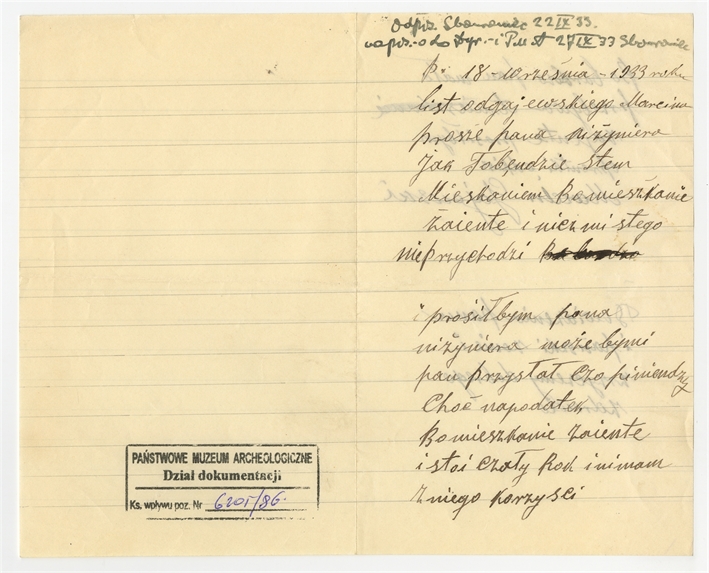 odpis. Sbaraniec 22 IX 33.
napis. do Dyr. PMA 27 IX 33 Sbaraniec
18 - września - 1933 roku
list odgajewskiego Marcina
prosze pana niżyniera
Jak Tobendzie Stem
Mieskaniem Bomieszkanie
Zaiente i nicz mi stego
nieprzychodzi
prosiłbym pana
niżyniera możebymi
pan przystał czo piniendzy
Choć napodatek
Bomieszkanie zaiente
i stoi czały Rok i nimam
zniego korzysci
PAŃSTWOWE MUZEUM ARCHEOLOGICZNE
Dział dokumentacji
Ks. wpływu poz. Nr 6201/86.